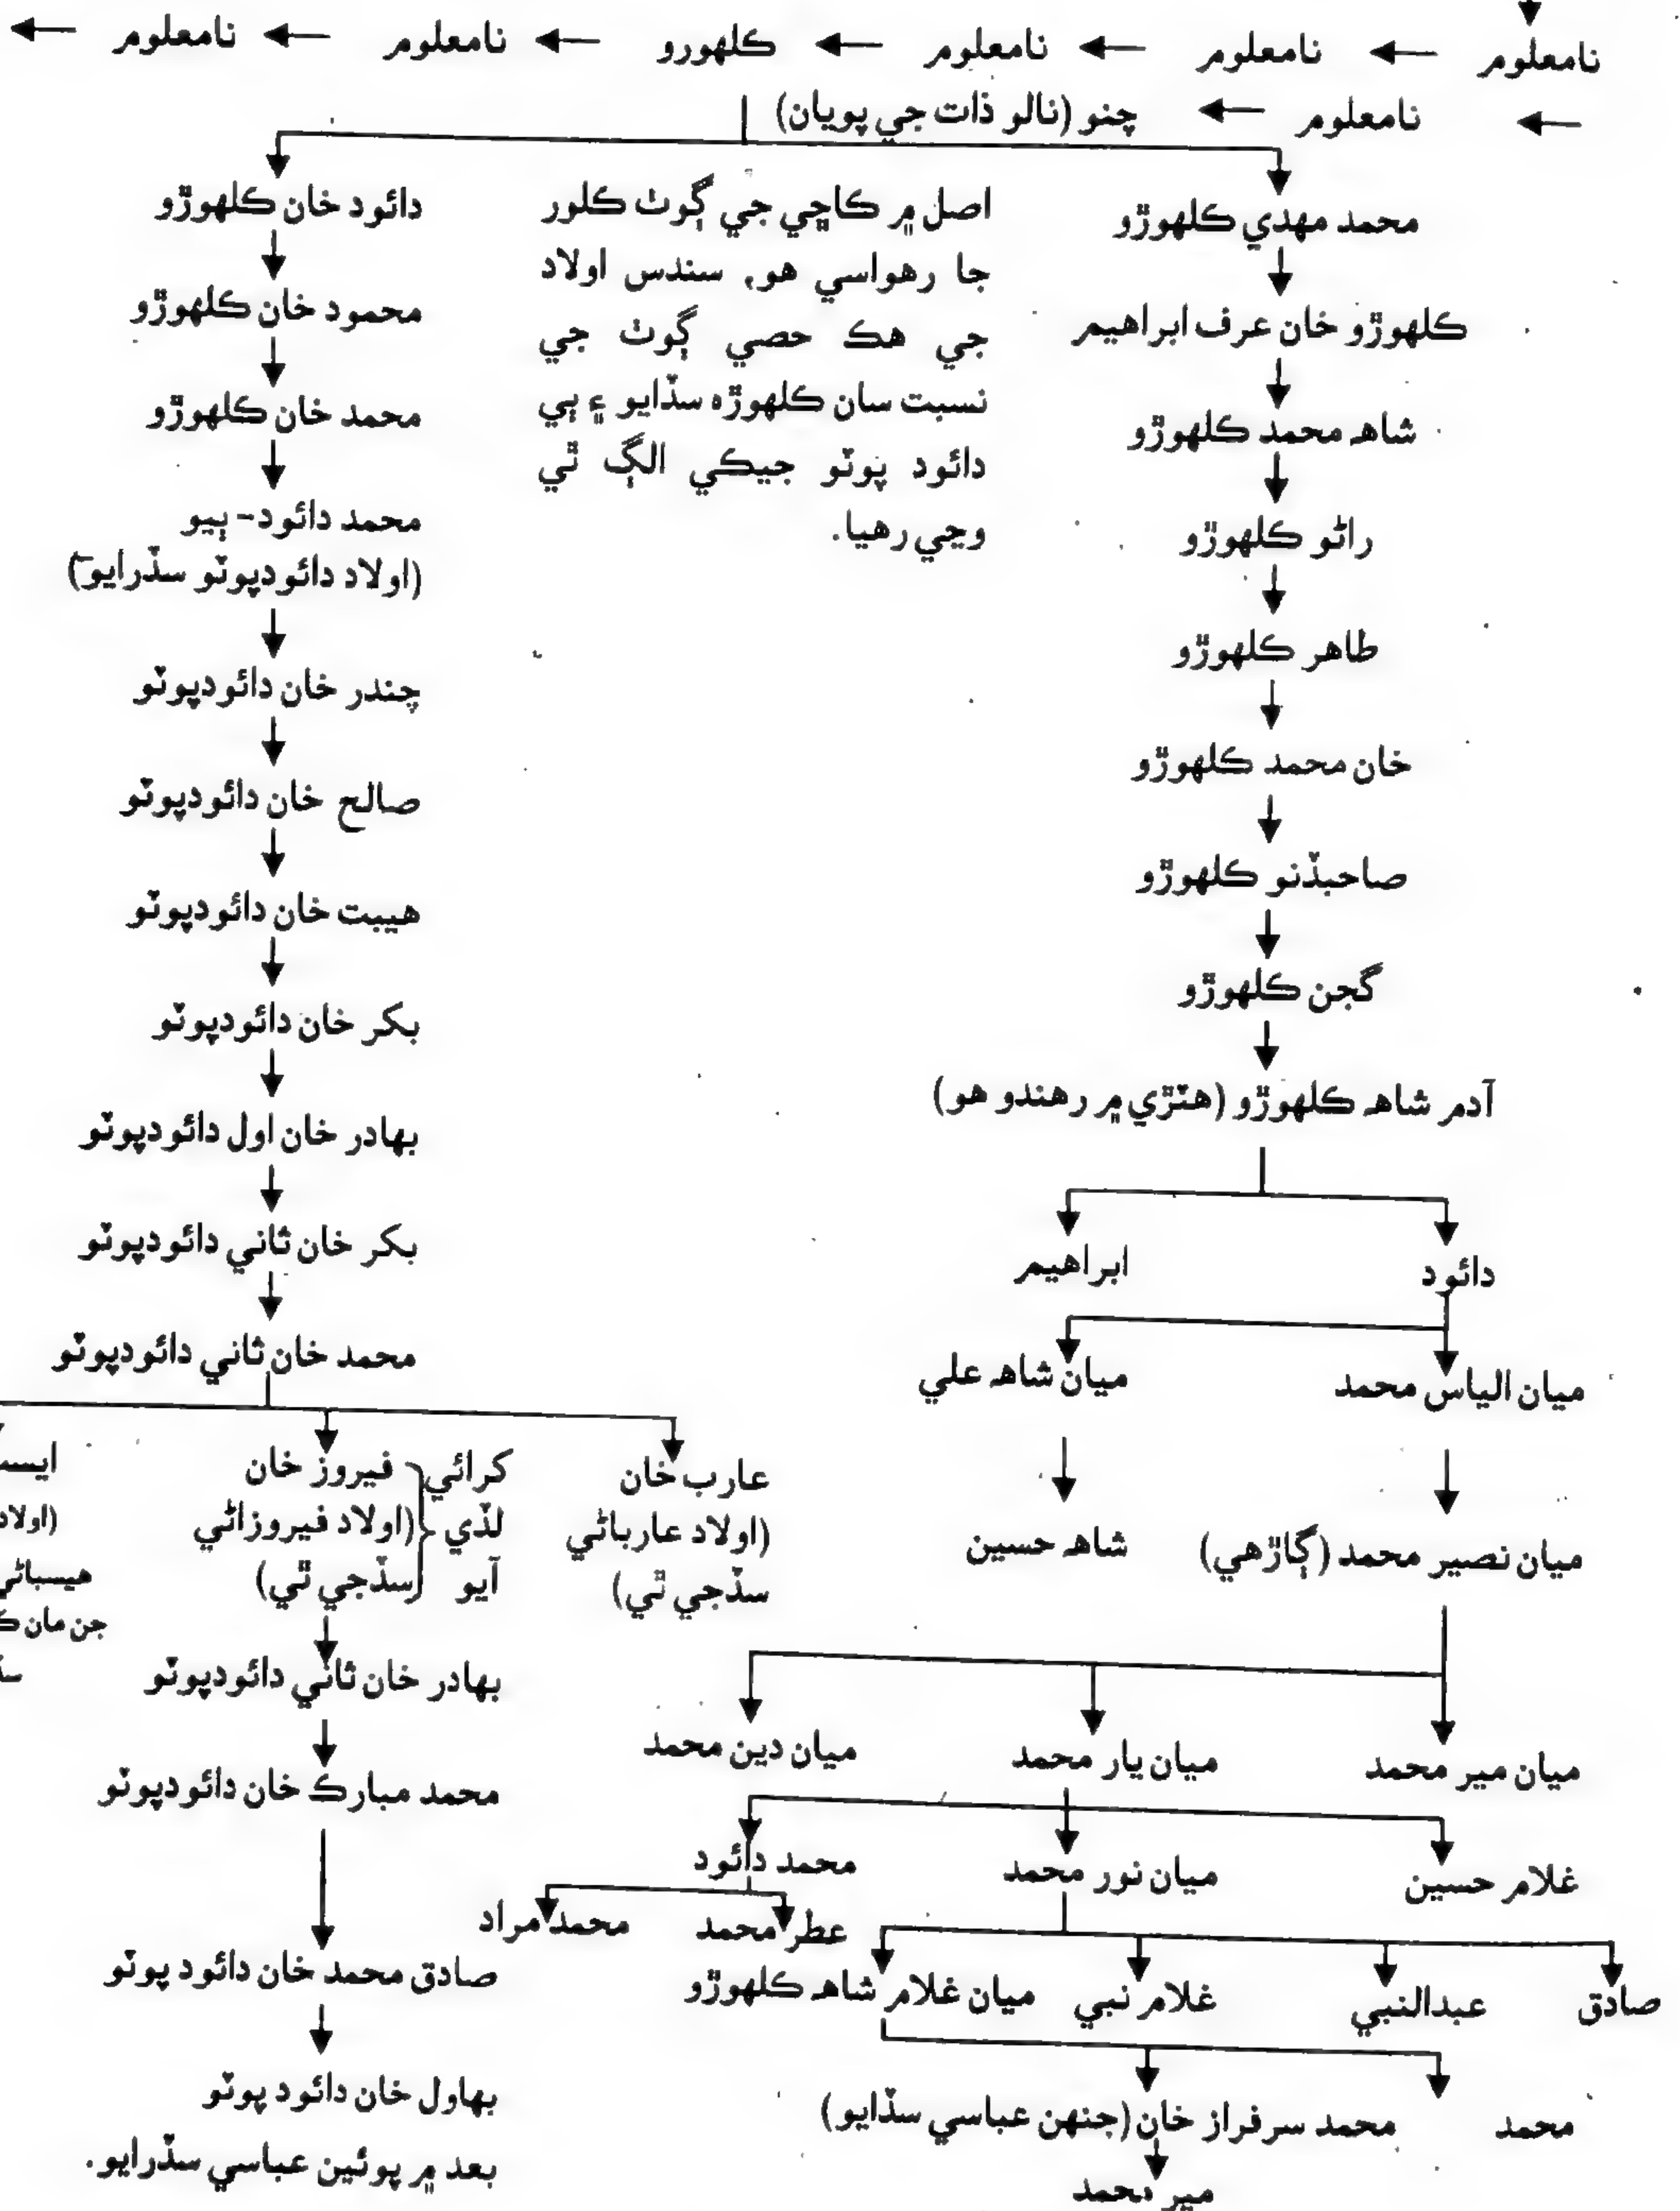 نامعلوم ← نامعلوم ← نامعلوم ← ڪلهورو ← نامعلوم ← نامعلوم ←
← نامعلوم ← چنو (نالو ذات جي پويان)
محمد مهدي ڪلهوڙو
ڪلهوڙو خان عرف ابراهيم
شاهه محمد ڪلهوڙو
راڻو ڪلهوڙو
طاهر ڪلهوڙو
خان محمد ڪلهوڙو
صاحبڏنو ڪلهوڙو
گجن ڪلهوڙو
آدم شاهه ڪلهوڙو (هٽڙي ۾ رهندو هو)
دائود
ابراهيم
ميان الياس محمد
ميان شاهه علي
ميان نصير محمد (ڳاڙهي)
شاهه حسين
ميان مير محمد
ميان يار محمد
ميان دين محمد
غلام حسين
ميان نور محمد
محمد دائود
عطر محمد
محمد مراد
صادق
عبدالنبي
غلام نبي
ميان غلام شاهه ڪلهوڙو
محمد
محمد سرفراز خان (جنهن عباسي سڏايو)
مير محمد
اصل ۾ ڪاڇي جي ڳوٺ ڪلور
جا رهواسي هو، سندس اولاد
جي هڪ حصي ڳوٺ جي
نسبت سان ڪلهوڙه سڏايو ۽ ٻي
دائود پوٽو جيڪي الڳ ٿي
وڃي رهيا.
دائود خان ڪلهوڙو
محمود خان ڪلهوڙو
محمد خان ڪلهوڙو
محمد دائود - ٻيو
(اولاد دائودپوٽو سڏرايو)
چندر خان دائودپوٽو
صالح خان دائودپوٽو
هيبت خان دائودپوٽو
بکر خان دائودپوٽو
بهادر خان اول دائودپوٽو
بکر خان ثاني دائودپوٽو
محمد خان ثاني دائودپوٽو
عارب خان
(اولاد عارباڻي
سڏجي ٿي)
کرائي
لڏي
آيو
فيروز خان
(اولاد فيروزاڻي
سڏجي ٿي)
(اولاد
هيسباڻي
جن مان
بهادر خان ثاني دائودپوٽو
محمد مبارڪ خان دائودپوٽو
صادق محمد خان دائود پوٽو
بهاول خان دائود پوٽو
بعد ۾ پوئين عباسي سڏرايو.